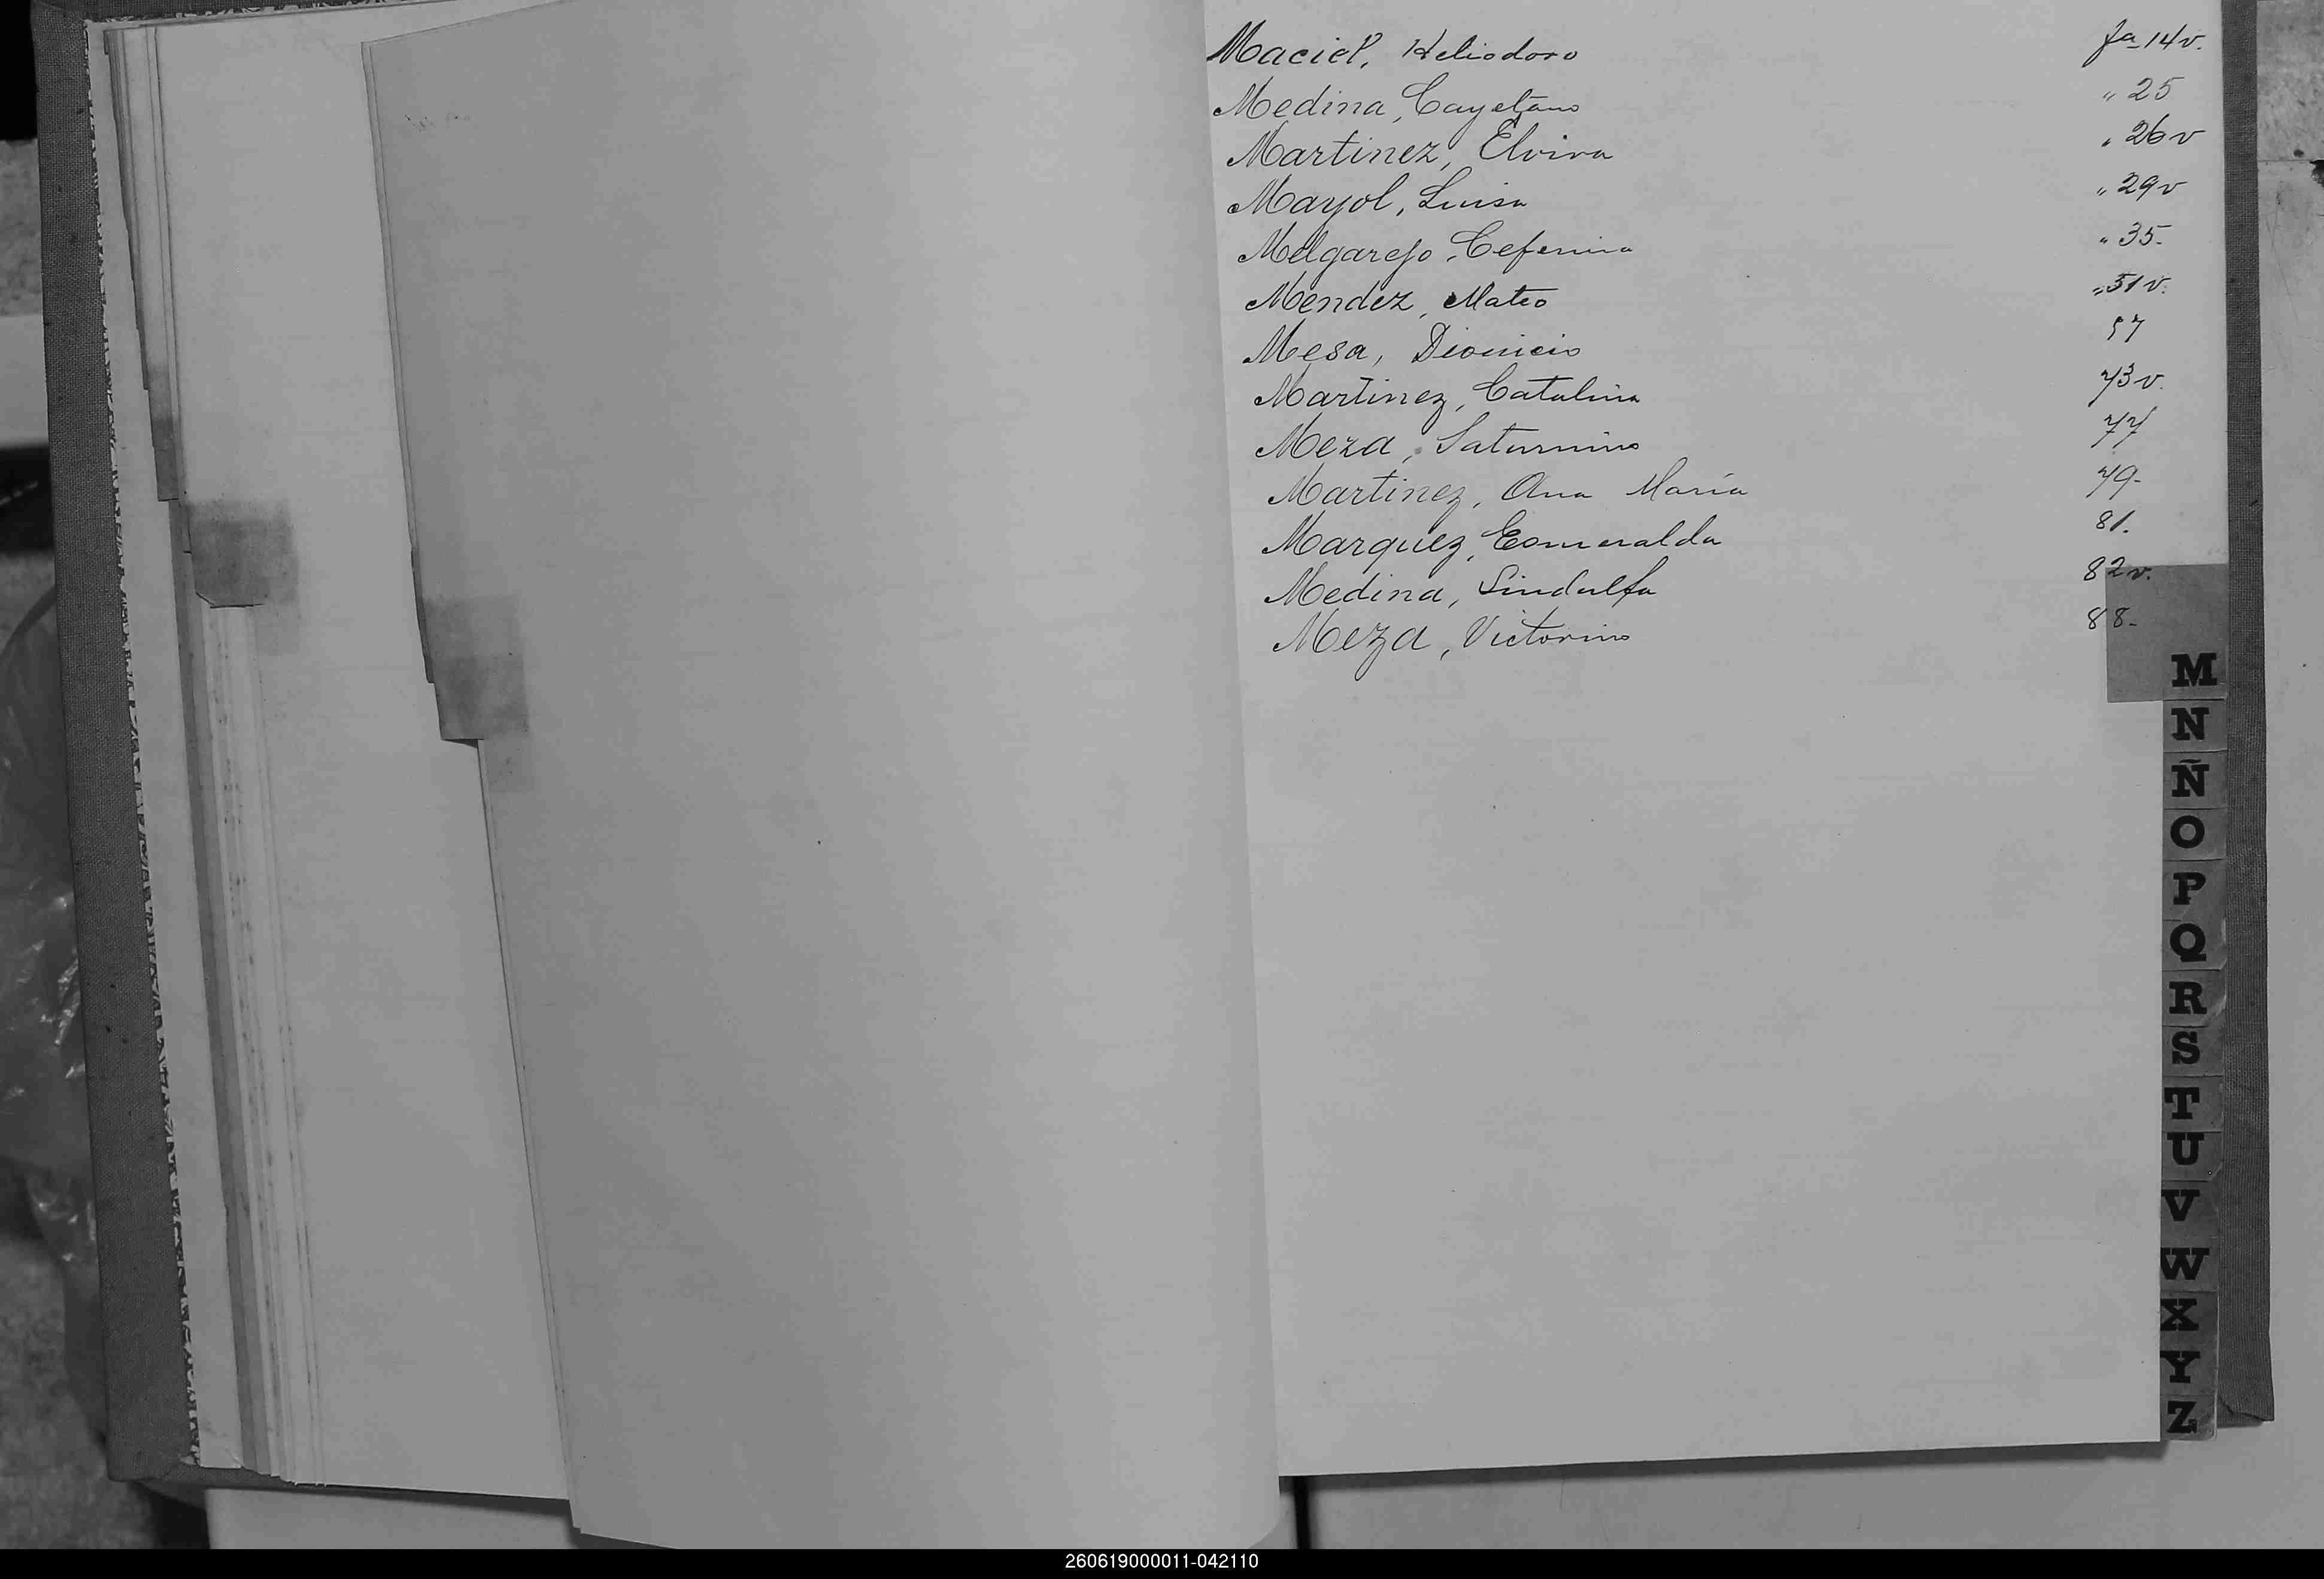 Maciel, Heliodoro fa 14v.
Medina, Cayetano " 25
Martinez, Elvira " 26v
Mayol, Luisa " 29v
Melgarejo, Ceferina " 35-
Mendez, Mateo " 51v.
Mesa, Dionicio 57
Martinez, Catalina 73v.
Meza, Saturnino 77
Martinez, Ana María 79-
Marquez, Esmeralda 81.
Medina, Sindulfa 82v.
Meza, Victorino 88-
M
N
Ñ
O
P
Q
R
S
T
U
V
W
X
Y
Z
260619000011-042110